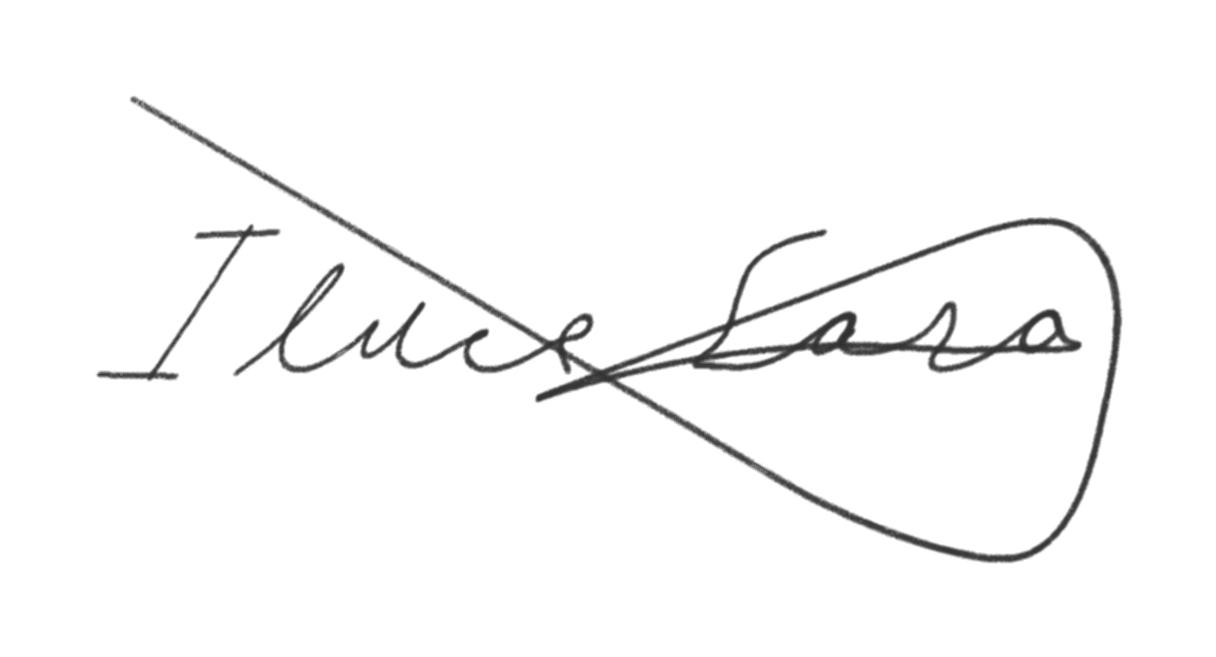 Iluce Sara